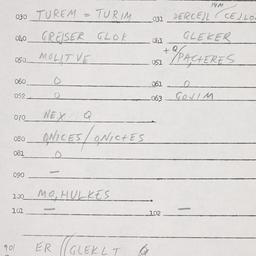 14M
030 TUREM = TURIM 031 DERCEJL / CEJLO
040 GREJSER GLOK 041 GLEKER
050 MOLJTVE 051 +Q /PACTERES
060 0 061 0
052 0 063 GOVJM
070 NEX Q
080 QNICES/QNICTES
081 0
090 —
100 MO,HULKES
101 — 102 —
901 ER ((GLEKLT Q